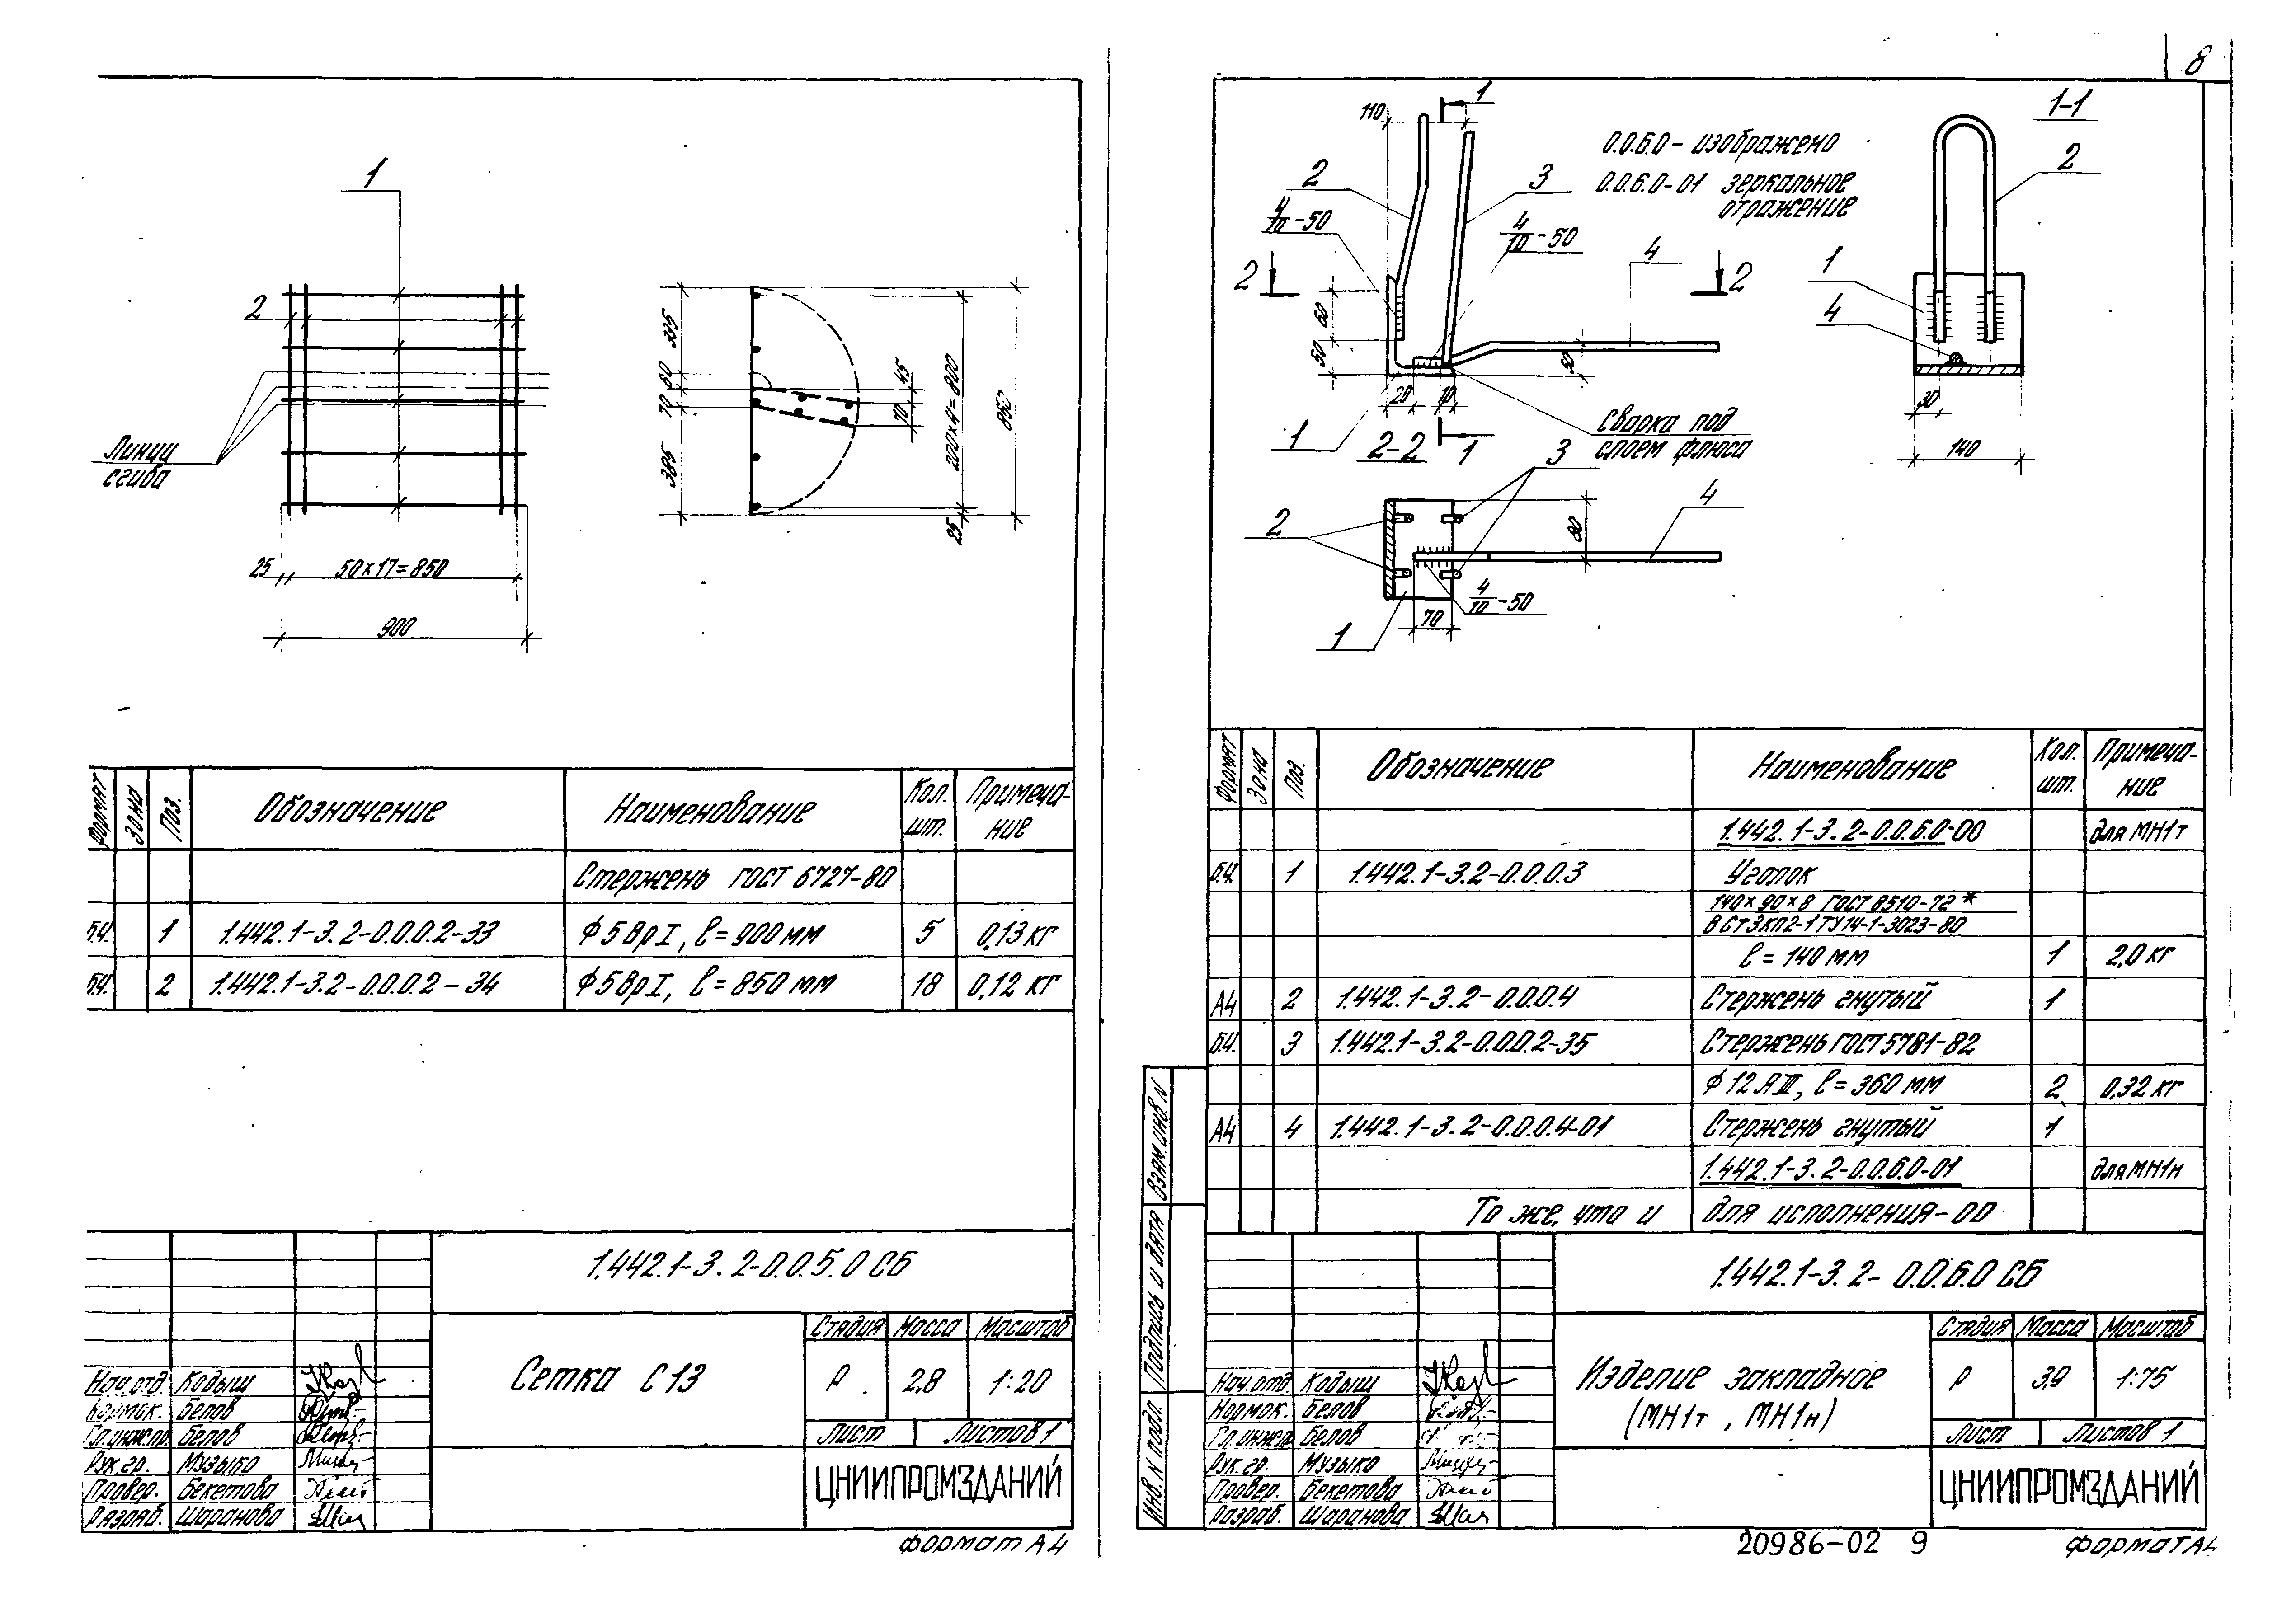 8
1
2
Линии
сгиба
25
50×17=850
900
395
60
70
385
45
70
200×4=800
25
1
110
1-1
0.0.6.0 - изображено
0.0.6.0-01 зеркальное
отражение
2
3
2
4/10-50
4/10-50
4
2
2
1
4
60
50
50
20
10
30
140
1
2-2
1
Сварка под
слоем флюса
3
2
4
80
4/10-50
70
1
Формат
Зона
Поз.
Обозначение
Наименование
Кол. шт.
Примечание
Стержень ГОСТ 6727-80
Б.Ч. 1 1.442.1-3.2-0.0.0.2-33 ϕ5ВрI, ℓ=900мм 5 0,13кг
Б.Ч. 2 1.442.1-3.2-0.0.0.2-34 ϕ5ВрI, ℓ=850мм 18 0,12кг
1.442.1-3.2-0.0.5.0 СБ
Сетка С13
Стадия Масса Масштаб
Р 2,8 1:20
Лист Листов 1
ЦНИИПРОМЗДАНИЙ
Нач.отд. Кодыш
Нормок. Белов
Гл.инж.пр. Белов
Рук.гр. Музыко
Провер. Бекетова
Разраб. Шаранова
Формат А4
Формат
Зона
Поз.
Обозначение
Наименование
Кол. шт.
Примечание
1.442.1-3.2-0.0.6.0-00 для МН1т
Б.Ч. 1 1.442.1-3.2-0.0.0.3 Уголок
140×90×8 ГОСТ 8510-72*
ВСт3кп2-1 ТУ14-1-3023-80
ℓ=140мм 1 2,0кг
А4 2 1.442.1-3.2-0.0.0.4 Стержень гнутый 1
Б.Ч. 3 1.442.1-3.2-0.0.0.2-35 Стержень ГОСТ 5781-82
ϕ12АIII, ℓ=360мм 2 0,32кг
А4 4 1.442.1-3.2-0.0.0.4-01 Стержень гнутый 1
1.442.1-3.2-0.0.6.0-01 для МН1н
То же, что и для исполнения-00
Взам.инв.N
Подпись и дата
Инв.N подл.
1.442.1-3.2-0.0.6.0 СБ
Изделие закладное
(МН1т, МН1н)
Стадия Масса Масштаб
Р 3,9 1:75
Лист Листов 1
ЦНИИПРОМЗДАНИЙ
Нач.отд. Кодыш
Нормок. Белов
Гл.инжен. Белов
Рук.гр. Музыко
Провер. Бекетова
Разраб. Шаранова
20986-02 9
Формат А4